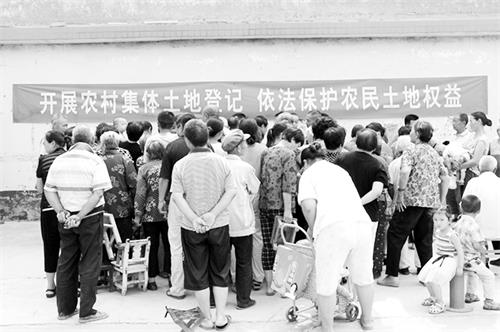 开展农村集体土地登记 依法保护农民土地权益